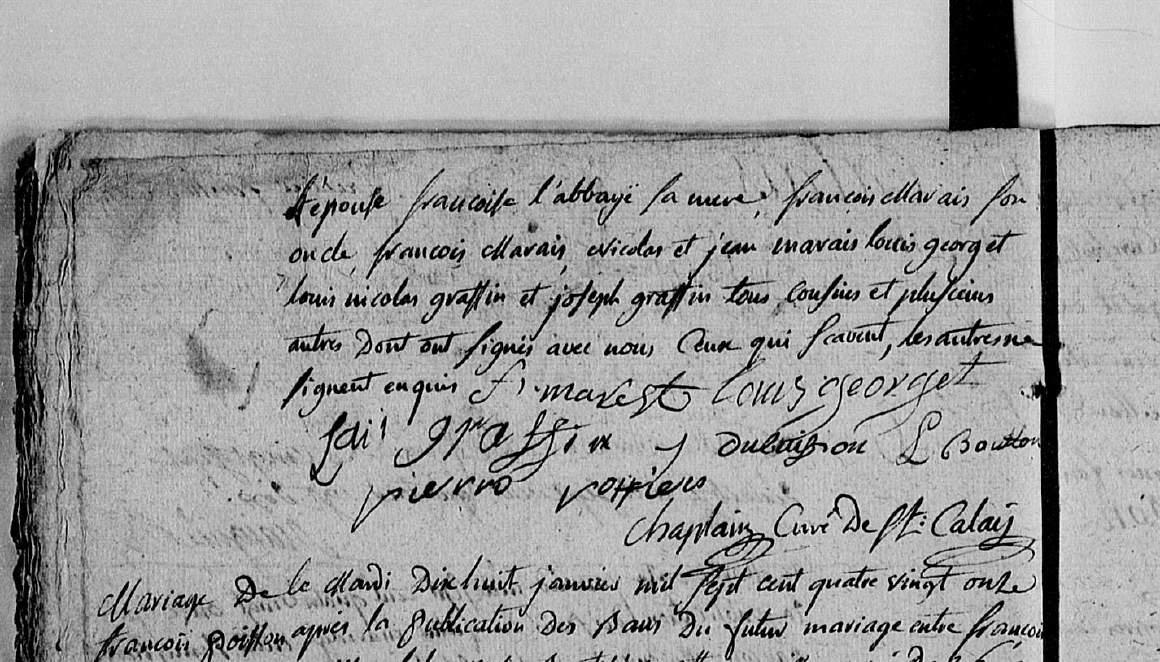 d'epouse francoise l'abbaye sa mere, francois Marais son
oncle, francois Marais, Nicolas et jean marais louis georget
louis nicolas graffin et joseph graffin tous cousins et plusieurs
autres Dont ont signés avec nous Ceux qui scavent, les autres ne
signent enquis f. marest louis georget
graffin j dubuisson L Boutton
pierre pottiers
Chaplain Curé De St. Calais
le Mardi Dixhuit janvier mil sept cent quatre vingt onze
Mariage De
après la Publication Des Bans Du futur mariage entre francois
francois poisson